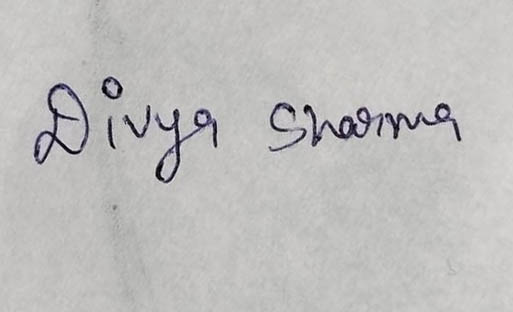 Divya Sharma